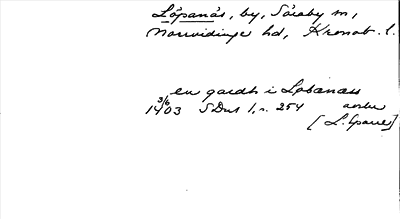 Löpanäs, by, Söraby sn,
Norrvidinge hd, Kronob. l.
en gardh i Lobanæs
3/6
1403 SDns 1, s. 254
[L. Sparre]